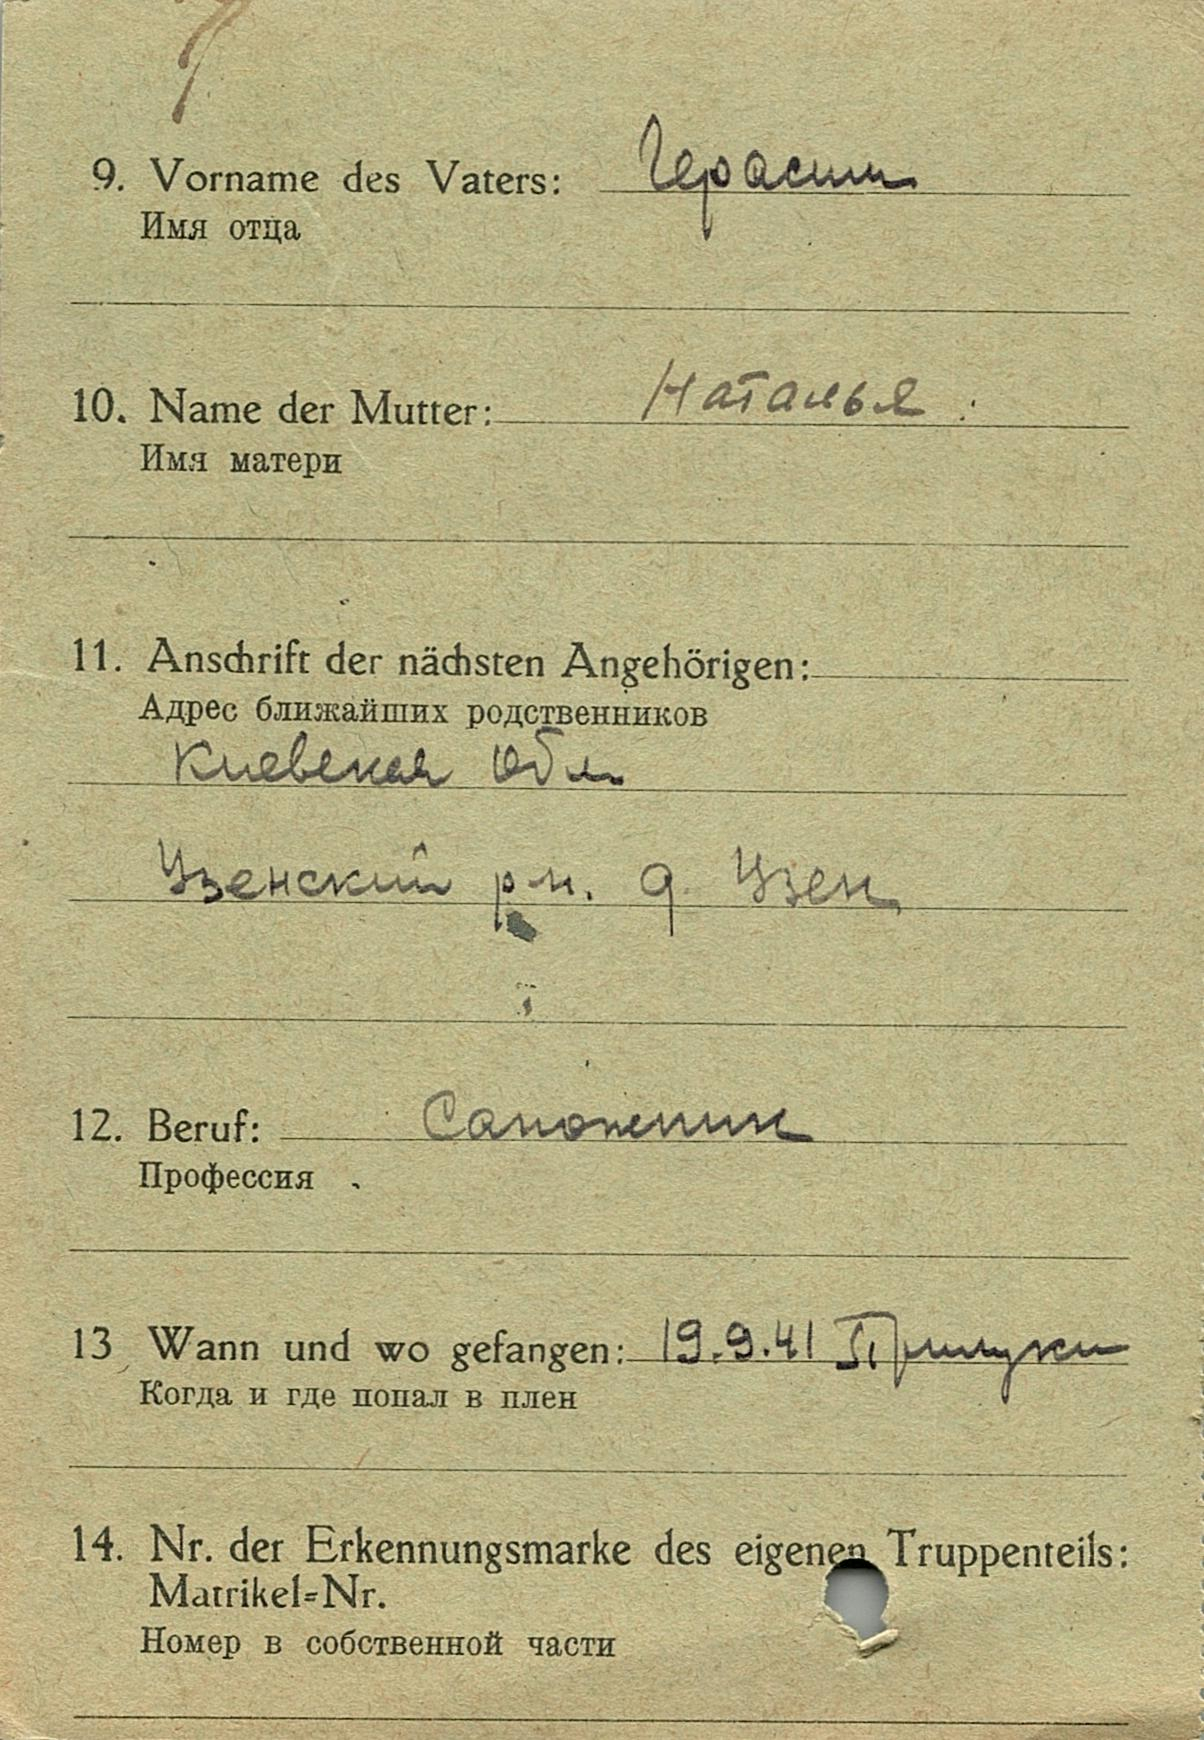 9. Vorname des Vaters: Герасим
Имя отца
10. Name der Mutter: Наталья
Имя матери
11. Anschrift der nächsten Angehörigen:
Адрес ближайших родственников
Киевская обл.
Узенский р-н. д. Узен
12. Beruf: Сапожник
Профессия
13 Wann und wo gefangen: 19.9.41 Прилуки
Когда и где попал в плен
14. Nr. der Erkennungsmarke des eigenen Truppenteils:
Matrikel=Nr.
Номер в собственной части